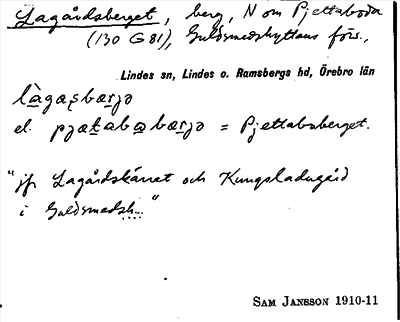 Lagårdsberget, berg, N om Pjettaboda
(130 G 81), Guldsmedshyttans förs.,
Lindes sn, Lindes o. Ramsbergs hd, Örebro län
làgaṣbærjə
el. pjætababærjə = Pjettabsberget.
"jfr Lagårdskärret och Kungsladugård
i Guldsmedsh..."
SAM JANSSON 1910-11